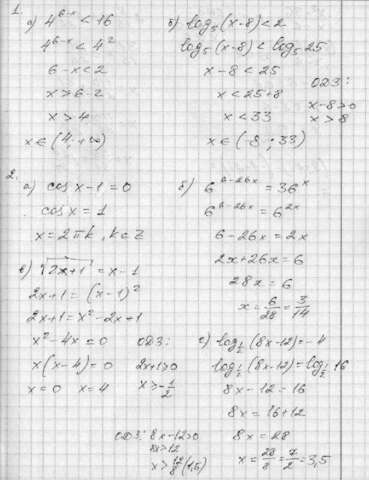 1.
а) 4^(6-x) < 16
4^(6-x) < 4^2
6 - x < 2
x > 6 - 2
x > 4
x ∈ (4; +∞)
б) log₅(x-8) < 2
log₅(x-8) < log₅ 25
x - 8 < 25
x < 25 + 8
x < 33
x ∈ (-8; 33)
ОДЗ:
x - 8 > 0
x > 8
2.
а) cos x - 1 = 0
cos x = 1
x = 2πk, k ∈ Z
б) 6^(6-26x) = 36^x
6^(6-26x) = 6^(2x)
6 - 26x = 2x
2x + 26x = 6
28x = 6
x = 6/28 = 3/14
в) √(2x+1) = x - 1
2x + 1 = (x-1)^2
2x + 1 = x^2 - 2x + 1
x^2 - 4x = 0
x(x-4) = 0
x = 0 x = 4
ОДЗ:
2x+1 > 0
x > -1/2
г) log_(1/2)(8x-12) = -4
log_(1/2)(8x-12) = log_(1/2) 16
8x - 12 = 16
8x = 16 + 12
8x = 28
x = 28/8 = 7/2 = 3,5
ОДЗ: 8x - 12 > 0
8x > 12
x > 12/8 (1,5)